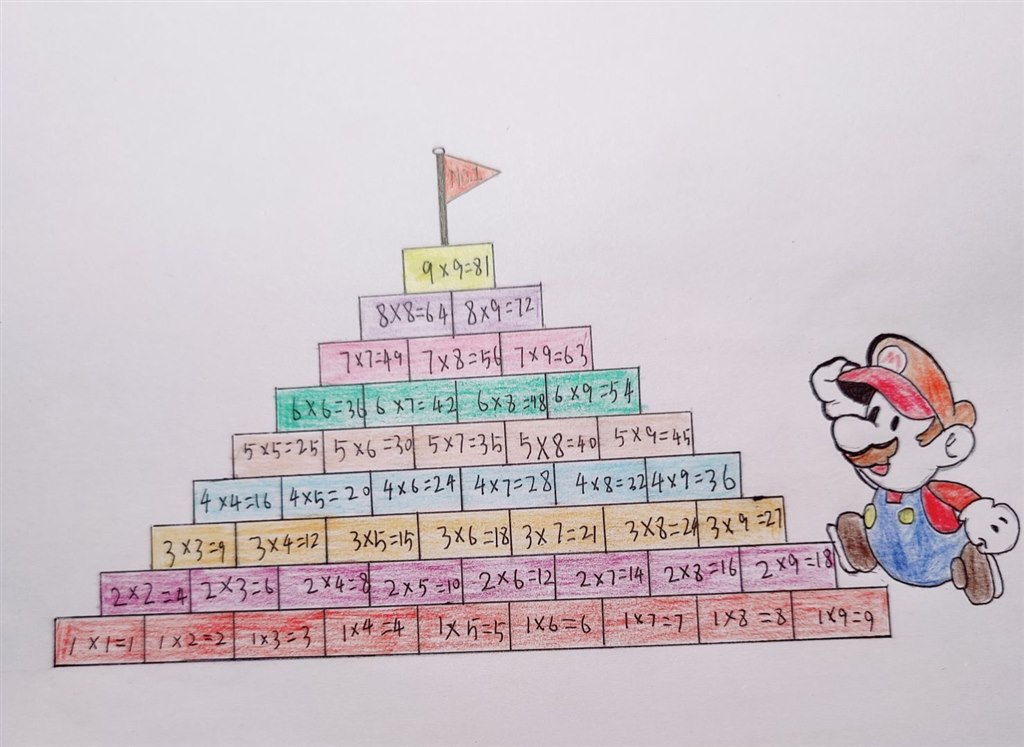 No.1
9×9=81
8×8=64 8×9=72
7×7=49 7×8=56 7×9=63
6×6=36 6×7=42 6×8=48 6×9=54
5×5=25 5×6=30 5×7=35 5×8=40 5×9=45
4×4=16 4×5=20 4×6=24 4×7=28 4×8=32 4×9=36
3×3=9 3×4=12 3×5=15 3×6=18 3×7=21 3×8=24 3×9=27
2×2=4 2×3=6 2×4=8 2×5=10 2×6=12 2×7=14 2×8=16 2×9=18
1×1=1 1×2=2 1×3=3 1×4=4 1×5=5 1×6=6 1×7=7 1×8=8 1×9=9
M